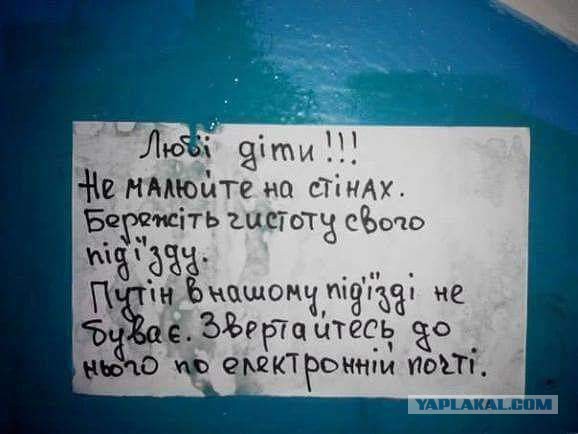 Любі діти!!!
Не малюйте на стінах.
Бережіть чистоту свого
під'їзду.
Путін в нашому під'їзді не
буває. Звертайтесь до
нього по електронній почті.
YAPLAKAL.COM